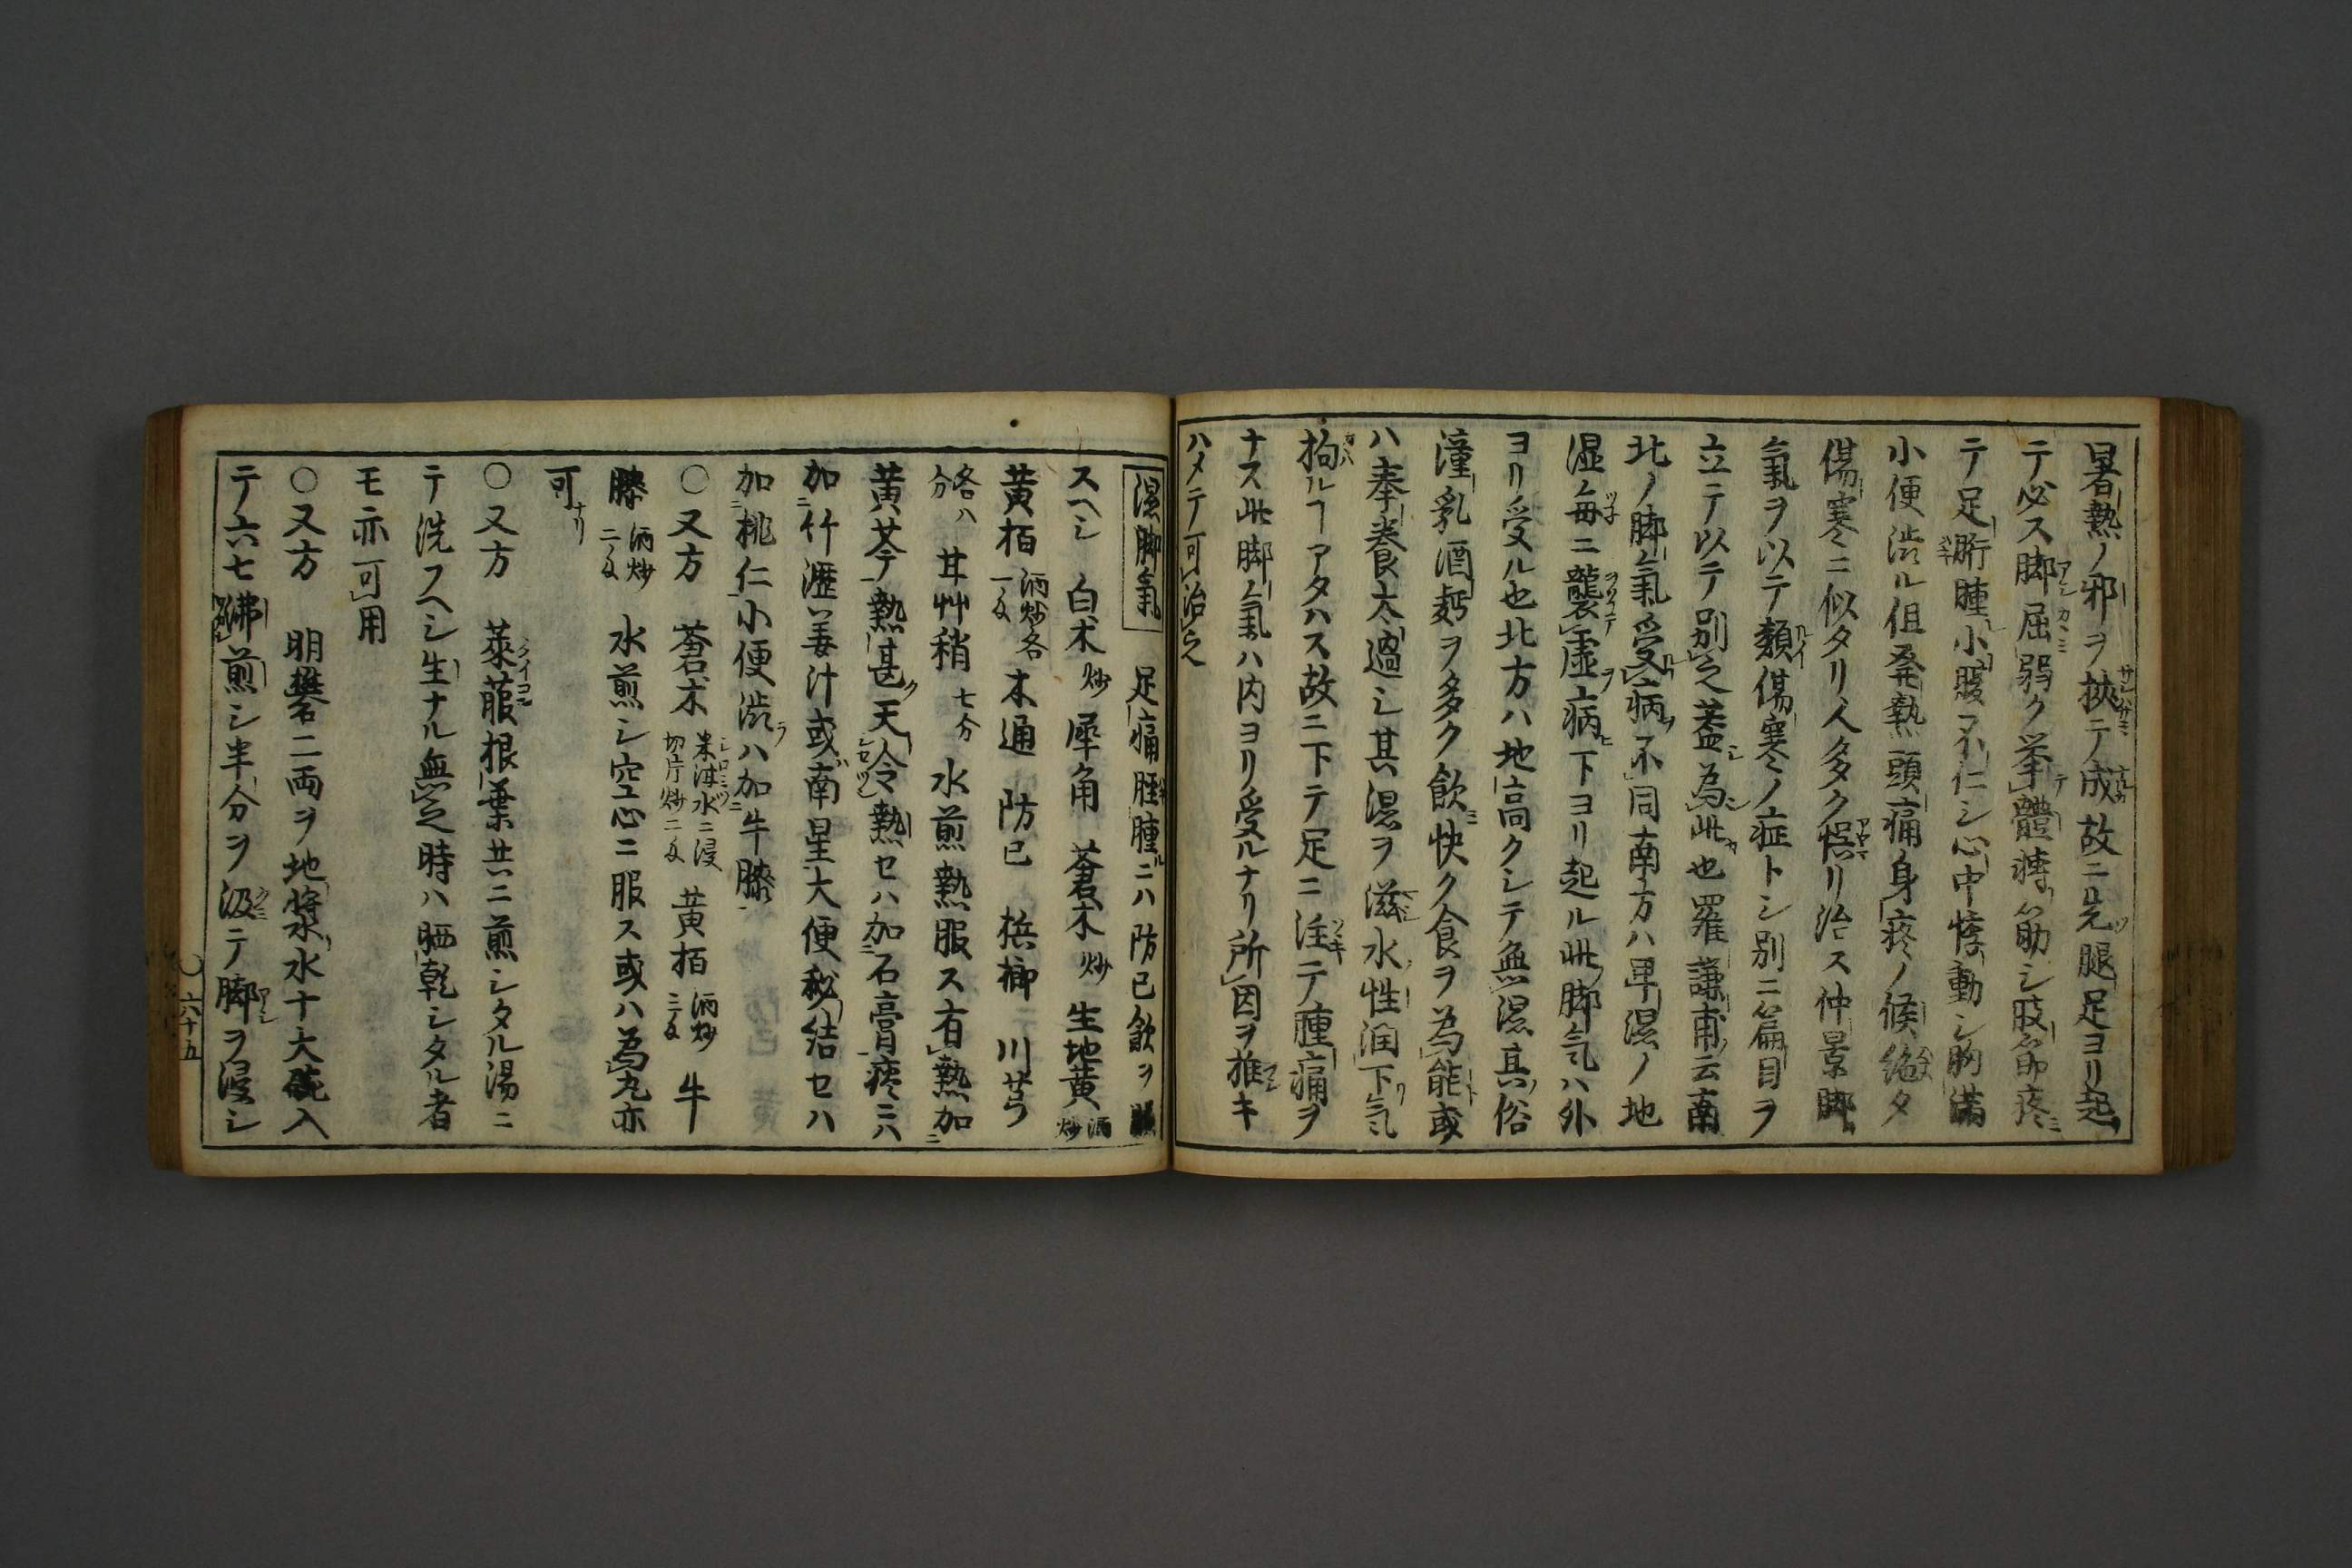 暑熱ノ邪ヲ挾テ成故ニ先腿足ヨリ起
テ必ス脚屈弱ク挙體轉筋シ肢節疼
テ足胻腫小腹不仁シ心中悸動シ胸満
小便渋ル但発熱頭痛身疼ノ候絶タ
傷寒ニ似タリ人多ク悞リ治ス仲景脚
氣ヲ以テ類傷寒ノ症トシ別ニ篇目ヲ
立テ以テ別之蓋為此也羅謙甫云南
北ノ脚氣受病不同南方ハ卑湿ノ地
湿毎ニ襲虚病下ヨリ起ル此脚気ハ外
ヨリ受ル也北方ハ地高クシテ無濕其俗
潼乳酒麪ヲ多ク飲快ク食ヲ為能或
ハ奉養太過シ其濕ヲ滋水性潤下気
拘ルヿアタハス故ニ下テ足ニ注テ腫痛ヲ
ナス此脚氣ハ内ヨリ受ルナリ所因ヲ推キ
ハメテ可治之
濕脚氣 足痛脛腫ニハ防已飲ヲ服
スヘシ 白朮炒 犀角 蒼朮炒 生地黄酒炒
黄栢酒炒各一匁 木通 防已 梹榔 川芎
各八分 甘艸稍七分 水煎熱服ス有熱加
黄芩熱甚天令熱セハ加石膏痰ニハ
加竹瀝姜汁或南星大便秘結セハ
加桃仁小便渋ハ加牛膝
○又方 蒼朮米泔水ニ浸切片炒二匁 黄栢酒炒三匁 牛
膝酒炒二匁 水煎シ空心ニ服ス或ハ為丸亦
可
○又方 萊菔根葉共ニ煎シタル湯ニ
テ洗フヘシ生ナル無之時ハ晒乾シタル者
モ亦可用
○又方 明礬二両ヲ地漿水十大碗入
テ六七沸煎シ半分ヲ汲テ脚ヲ浸シ
○六十五